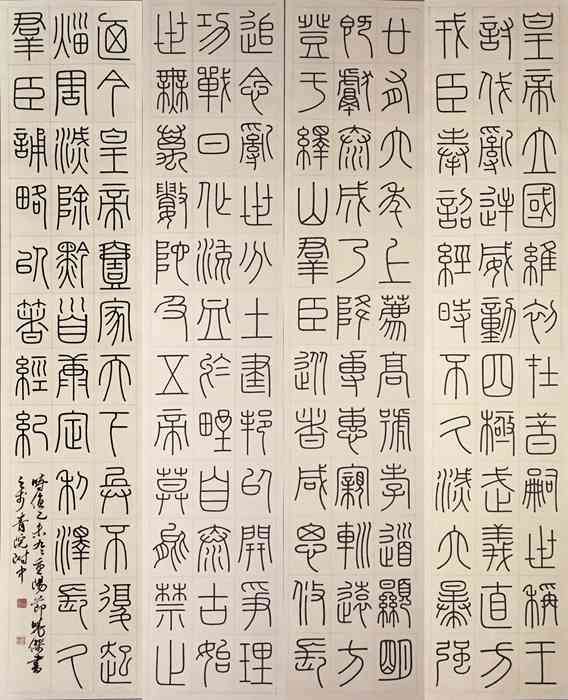 皇帝立國維初在昔嗣世稱王
討伐亂逆威動四極武義直方
戎臣奉詔經時不久滅六暴強
廿有六年上薦高號孝道顯明
既獻泰成乃降專惠親巡遠方
登于繹山羣臣從者咸思攸長
追念亂世分土建邦以開爭理
功戰日作流血於野自泰古始
世無萬數陀及五帝莫能禁止
迺今皇帝壹家天下兵不復起
災害滅除黔首康定利澤長久
羣臣誦略以著經紀
時值乙未九九重陽節書
青院附中